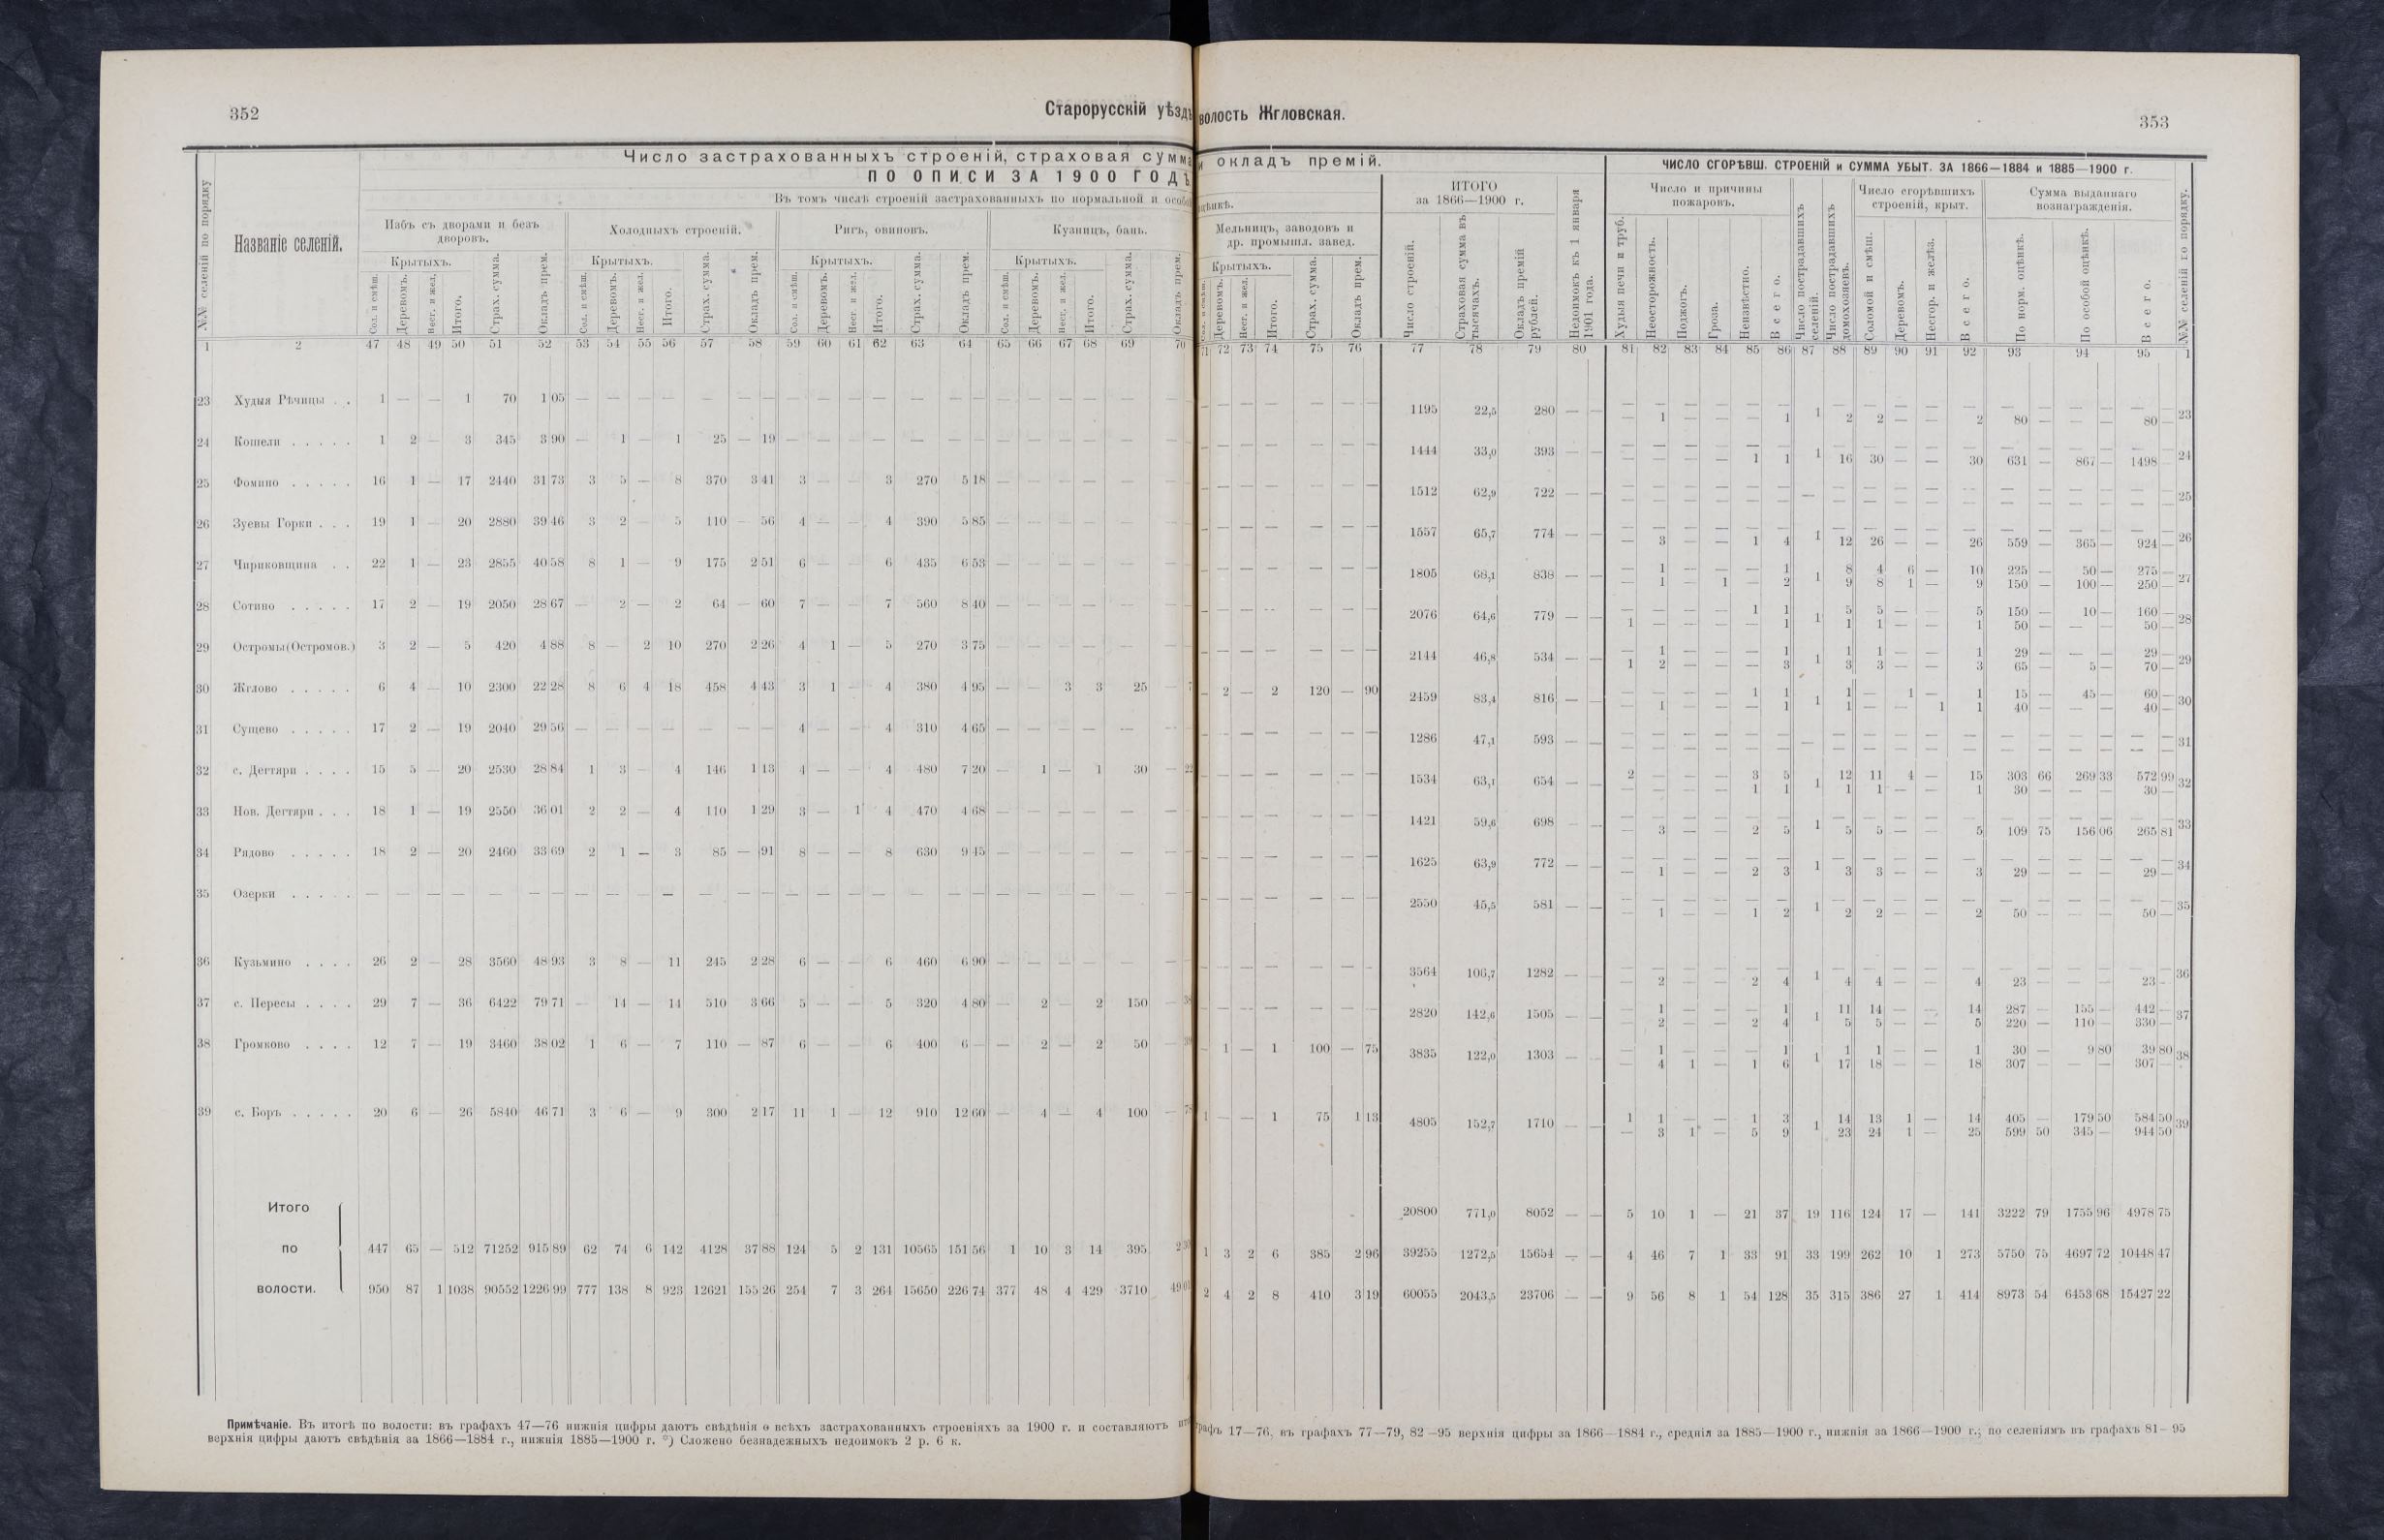 352
Старорусскій уѣздъ
волость Жгловская.
353
Число застрахованныхъ строеній, страховая сумма
и окладъ премій.
ПО ОПИСИ ЗА 1900 ГОДЪ
Въ томъ числѣ строеній застрахованныхъ по нормальной и особой
оцѣнкѣ.
ИТОГО за 1866—1900 г.
ЧИСЛО СГОРѢВШ. СТРОЕНІЙ и СУММА УБЫТ. ЗА 1866—1884 и 1885—1900 г.
№№ селеній по порядку
Названіе селеній.
Избъ съ дворами и безъ дворовъ.
Холодныхъ строеній.
Ригъ, овиновъ.
Кузницъ, бань.
Мельницъ, заводовъ и др. промышл. завед.
Число и причины пожаровъ.
Число сгорѣвшихъ строеній, крыт.
Сумма выданнаго вознагражденія.
Крытыхъ. Крытыхъ. Крытыхъ. Крытыхъ. Крытыхъ.
Сол. и смѣш. Деревомъ. Несг. и жел. Итого. Страх. сумма. Окладъ прем.
Сол. и смѣш. Деревомъ. Несг. и жел. Итого. Страх. сумма. Окладъ прем.
Сол. и смѣш. Деревомъ. Несг. и жел. Итого. Страх. сумма. Окладъ прем.
Сол. и смѣш. Деревомъ. Несг. и жел. Итого. Страх. сумма. Окладъ прем.
Сол. и смѣш. Деревомъ. Несг. и жел. Итого. Страх. сумма. Окладъ прем.
Число строеній. Страховая сумма въ тысячахъ. Окладъ премій рублей. Недоимокъ къ 1 января 1901 года.
Худыя печи и труб. Неосторожность. Поджогъ. Гроза. Неизвѣстно. Всего. Число пострадавшихъ селеній. Число пострадавшихъ домохозяевъ.
Соломой и смѣш. Деревомъ. Несгор. и желѣз. Всего. По норм. оцѣнкѣ. По особой оцѣнкѣ. Всего. №№ селеній по порядку.
1 2 47 48 49 50 51 52 53 54 55 56 57 58 59 60 61 62 63 64 65 66 67 68 69 70 71 72 73 74 75 76 77 78 79 80 81 82 83 84 85 86 87 88 89 90 91 92 93 94 95 1
23 Худыя Рѣчицы . . 1 — — 1 70 1 05 — — — — — — — — — — — — — — — — — — — — — — — — — — 1195 22,5 280 — — — — — — — — 1 — — — — — — — — — 23
— 1 — — — 1 2 2 — — 2 80 — — — 80 —
24 Кошели . . . . . 1 2 — 3 345 3 90 — 1 — 1 25 — 19 — — — — — — — — — — — — — — — — — — 1444 33,0 393 — — — — — — — — 1 — — — — — — — — — 24
— — — — 1 1 16 30 — — 30 631 — 867 — 1498 —
25 Фомино . . . . . 16 1 — 17 2440 31 73 3 5 — 8 370 3 41 3 — — 3 270 5 18 — — — — — — — — — — — — 1512 62,9 722 — — — — — — — — — — — — — — — — — 25
26 Зуевы Горки . . . 19 1 — 20 2880 39 46 3 2 — 5 110 — 56 4 — — 4 390 5 85 — — — — — — — — — — — — 1557 65,7 774 — — — — — — — — 1 — — — — — — — — 26
— 3 — — 1 4 12 26 — — 26 559 — 365 — 924 —
27 Чириковщина . . 22 1 — 23 2855 40 58 8 1 — 9 175 2 51 6 — — 6 435 6 53 — — — — — — — — — — — — 1805 68,1 838 — — — 1 — — — 1 1 8 4 6 — 10 225 — 50 — 275 — 27
— 1 — 1 — 2 9 8 1 — 9 150 — 100 — 250 —
28 Сотино . . . . . 17 2 — 19 2050 28 67 — 2 — 2 64 — 60 7 — — 7 560 8 40 — — — — — — — — — — — — 2076 64,6 779 — — — — — — 1 1 1 5 5 — — 5 150 — 10 — 160 — 28
1 — — — — 1 1 1 — — 1 50 — — — 50 —
29 Остромы(Остромов.) 3 2 — 5 420 4 88 8 — 2 10 270 2 26 4 1 — 5 270 3 75 — — — — — — — — — — — — 2144 46,8 534 — — — 1 — — — 1 1 1 1 — — 1 29 — — — 29 — 29
1 2 — — — 3 3 3 — — 3 65 — 5 — 70 —
30 Жглово . . . . . 6 4 — 10 2300 22 28 8 6 4 18 458 4 43 3 1 — 4 380 4 95 — — 3 3 25 — — 2 — 2 120 — 90 2459 83,4 816 — — — — — — 1 1 1 1 — 1 — 1 15 — 45 — 60 — 30
— 1 — — — 1 1 — — 1 1 40 — — — 40 —
31 Сущево . . . . . 17 2 — 19 2040 29 56 — — — — — — — 4 — — 4 310 4 65 — — — — — — — — — — — — 1286 47,1 593 — — — — — — — — — — — — — — — — — 31
32 с. Дегтяри . . . . 15 5 — 20 2530 28 84 1 3 — 4 146 1 13 4 — — 4 480 7 20 — 1 — 1 30 — — — — — — — 1534 63,1 654 — — 2 — — — 3 5 1 12 11 4 — 15 303 66 269 33 572 99 32
— — — — 1 1 1 1 — — 1 30 — — — 30 —
33 Нов. Дегтяри . . . 18 1 — 19 2550 36 01 2 2 — 4 110 1 29 3 — 1 4 470 4 68 — — — — — — — — — — — — 1421 59,6 698 — — — — — — — — 1 — — — — — — — — 33
— 3 — — 2 5 5 5 — — 5 109 75 156 06 265 81
34 Рядово . . . . . 18 2 — 20 2460 33 69 2 1 — 3 85 — 91 8 — — 8 630 9 45 — — — — — — — — — — — — 1625 63,9 772 — — — — — — — — 1 — — — — — — — — 34
— 1 — — 2 3 3 3 — — 3 29 — — — 29 —
35 Озерки . . . . . — — — — — — — — — — — — — — — — — — — — — — — — — — — — — — — — 2550 45,5 581 — — — — — — — — 1 — — — — — — — — 35
— 1 — — 1 2 2 2 — — 2 50 — — — 50 —
36 Кузьмино . . . . 26 2 — 28 3560 48 93 3 8 — 11 245 2 28 6 — — 6 460 6 90 — — — — — — — — — — — — 3564 106,7 1282 — — — — — — — — 1 — — — — — — — — 36
— 2 — — 2 4 4 4 — — 4 23 — — — 23 —
37 с. Пересы . . . . 29 7 — 36 6422 79 71 — 14 — 14 510 3 66 5 — — 5 320 4 80 — 2 — 2 150 — — — — — — — 2820 142,6 1505 — — — 1 — — — 1 1 11 14 — — 14 287 — 155 — 442 — 37
— 2 — — 2 4 5 5 — — 5 220 — 110 — 330 —
38 Громково . . . . 12 7 — 19 3460 38 02 1 6 — 7 110 — 87 6 — — 6 400 6 — — 2 — 2 50 — — 1 — 1 100 — 75 3835 122,0 1303 — — — 1 — — — 1 1 1 1 — — 1 30 — 9 80 39 80 38
— 4 1 — 1 6 17 18 — — 18 307 — — — 307 —
39 с. Боръ . . . . . 20 6 — 26 5840 46 71 3 6 — 9 300 2 17 11 1 — 12 910 12 60 — 4 — 4 100 — 1 — — 1 75 1 13 4805 152,7 1710 — — 1 1 — — 1 3 1 14 13 1 — 14 405 — 179 50 584 50 39
— 3 1 — 5 9 23 24 1 — 25 599 50 345 — 944 50
Итого 20800 771,0 8052 — — 5 10 1 — 21 37 19 116 124 17 — 141 3222 79 1755 96 4978 75
по 447 65 — 512 71252 915 89 62 74 6 142 4128 37 88 124 5 2 131 10565 151 56 1 10 3 14 395 1 3 2 6 385 2 96 39255 1272,5 15654 — — 4 46 7 1 33 91 33 199 262 10 1 273 5750 75 4697 72 10448 47
волости. 950 87 1 1038 90552 1226 99 777 138 8 923 12621 155 26 254 7 3 264 15650 226 74 377 48 4 429 3710 2 4 2 8 410 3 19 60055 2043,5 23706 — — 9 56 8 1 54 128 35 315 386 27 1 414 8973 54 6453 68 15427 22
Примѣчаніе. Въ итогѣ по волости: въ графахъ 47—76 нижнія цифры даютъ свѣдѣнія о всѣхъ застрахованныхъ строеніяхъ за 1900 г. и составляютъ графъ 17—76, въ графахъ 77—79, 82—95 верхнія цифры за 1866—1884 г., среднія за 1885—1900 г., нижнія за 1866—1900 г.; по селеніямъ въ графахъ 81—95
верхнія цифры даютъ свѣдѣнія за 1866—1884 г., нижнія 1885—1900 г. °) Сложено безнадежныхъ недоимокъ 2 р. 6 к.